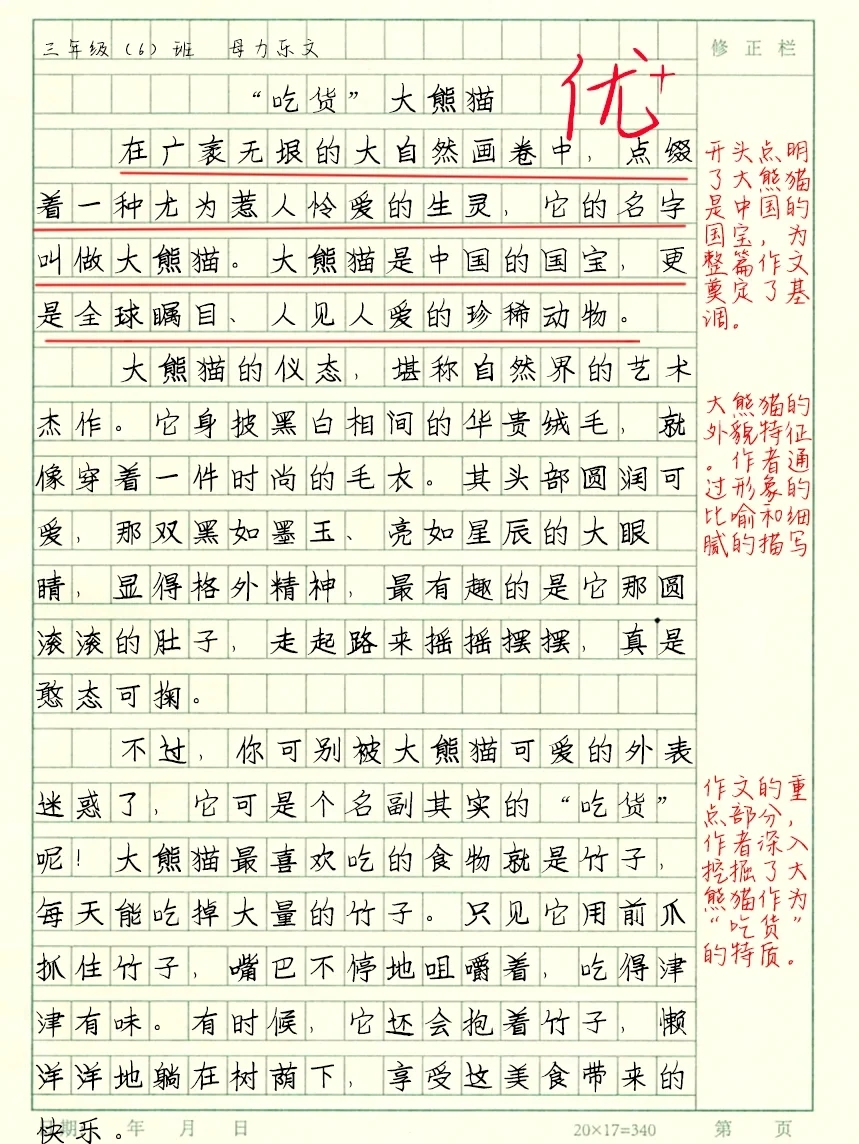 三年级（6）班 母力乐文
修正栏
"吃货"大熊猫
优+
在广袤无垠的大自然画卷中，点缀
着一种尤为惹人怜爱的生灵，它的名字
叫做大熊猫。大熊猫是中国的国宝，更
是全球瞩目、人见人爱的珍稀动物。
大熊猫的仪态，堪称自然界的艺术
杰作。它身披黑白相间的华贵绒毛，就
像穿着一件时尚的毛衣。其头部圆润可
爱，那双黑如墨玉、亮如星辰的大眼
睛，显得格外精神，最有趣的是它那圆
滚滚的肚子，走起路来摇摇摆摆，真是
憨态可掬。
不过，你可别被大熊猫可爱的外表
迷惑了，它可是个名副其实的"吃货"
呢！大熊猫最喜欢吃的食物就是竹子，
每天能吃掉大量的竹子。只见它用前爪
抓住竹子，嘴巴不停地咀嚼着，吃得津
津有味。有时候，它还会抱着竹子，懒
洋洋地躺在树荫下，享受这美食带来的
快乐。
开头点明
了大熊猫
是中国的
国宝，为
整篇作文
奠定了基
调。
大熊猫的
外貌特征
。作者通
过形象的
比喻和细
腻的描写
作文的重
点部分，
作者深入
挖掘了大
熊猫作为
"吃货"
的特质。
期 年 月 日
20×17=340
第 页